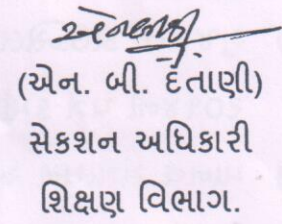 (એન. બી. દેતાણી)
સેક્શન અધિકારી
શિક્ષણ વિભાગ.